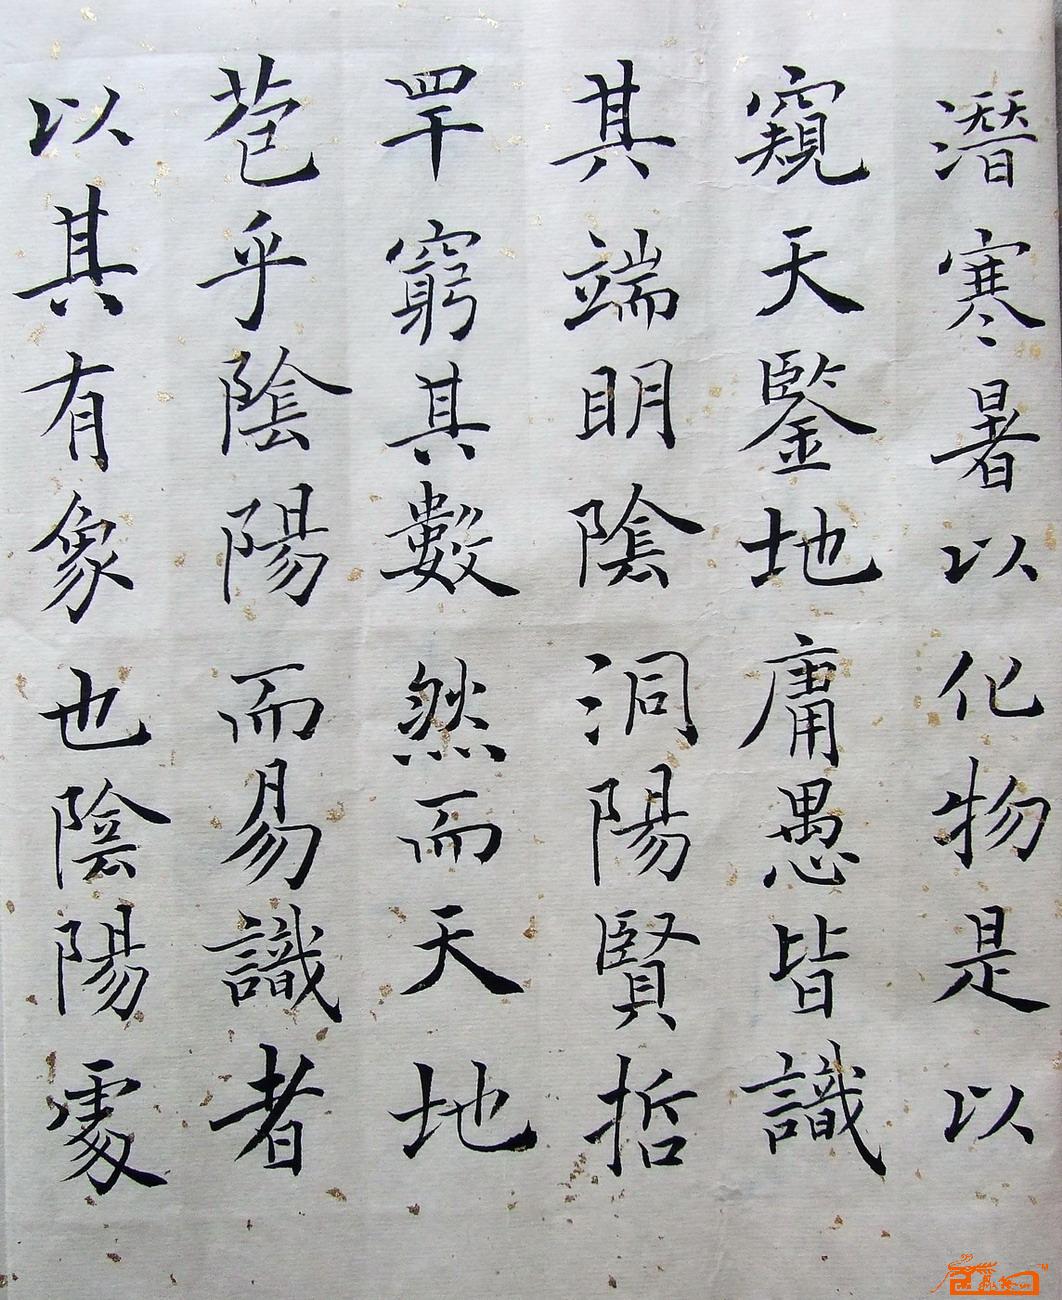 潛寒暑以化物是以
窺天鑒地庸愚皆識
其端明陰洞陽賢哲
罕窮其數然而天地
苞乎陰陽而易識者
以其有象也陰陽處